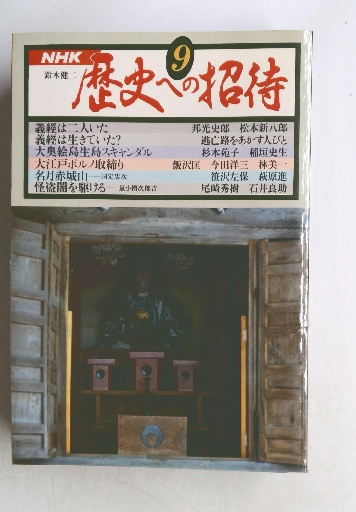 NHK
鈴木健二
歴史への招待
9
義経は二人いた 邦光史郎 松本新八郎
義経は生きていた? 逃亡路をあかす人びと
大奥絵島生島スキャンダル 杉本苑子 稲垣史生
大江戸ポルノ取締り 飯沢匡 今田洋三 林美一
名月赤城山――国定忠次 笹沢左保 萩原進
怪盗闇を駆ける――鼠小僧次郎吉 尾崎秀樹 石井良助